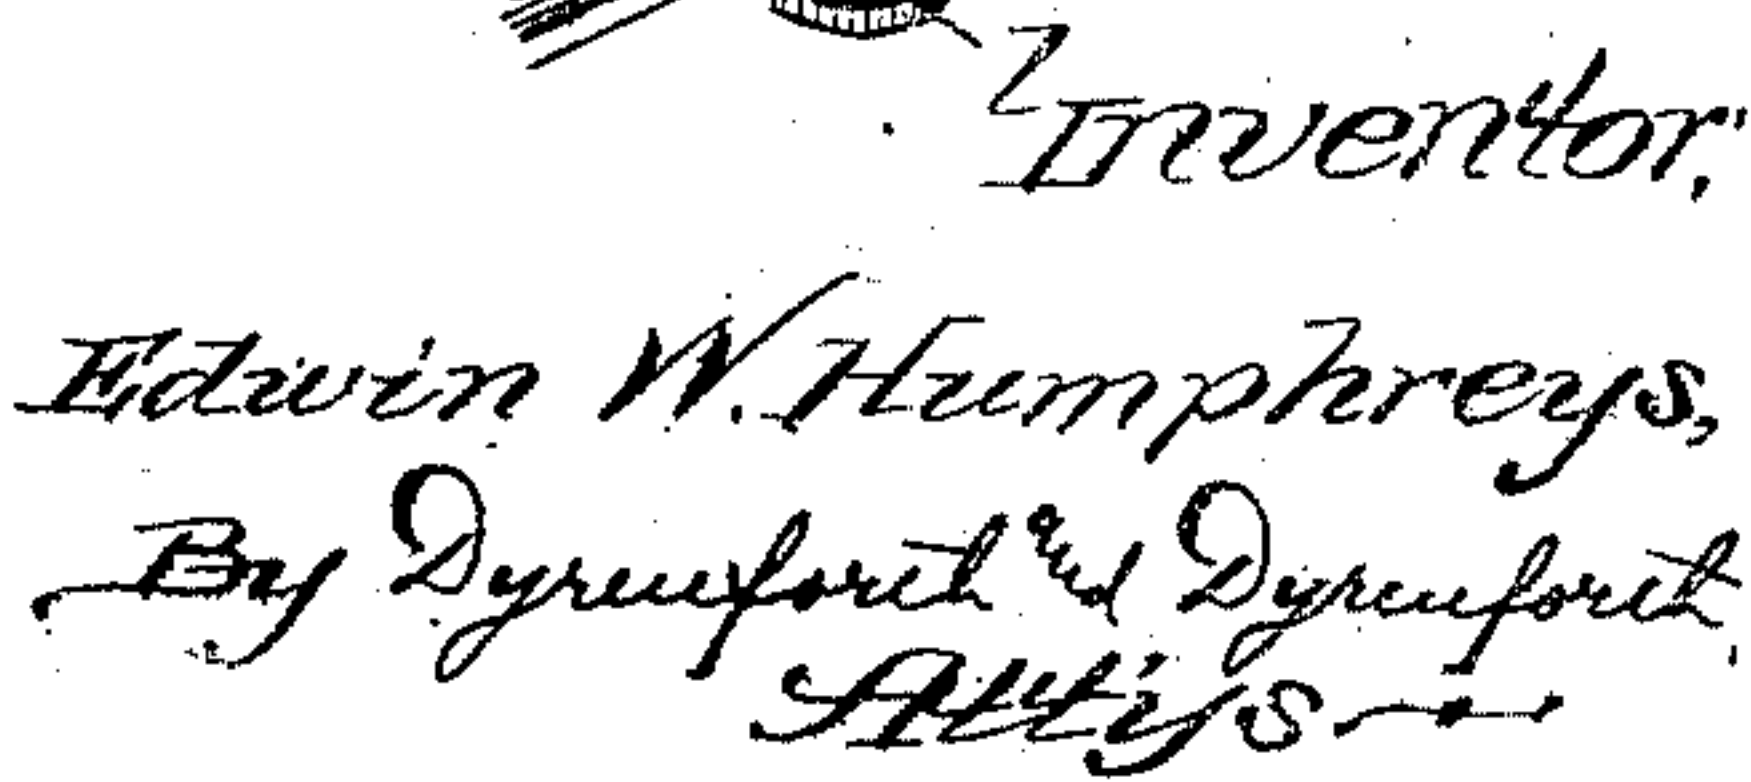 Inventor.
Edwin W. Humphreys,
By Dyrenforth and Dyrenforth,
Att'ys